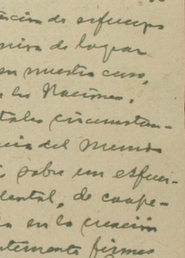 ción de esfuerzo
única de lograr
en nuestro caso,
las Naciones.
tales circunstan-
cia del Mundo
sobre un esfuer-
dental, de coope-
en la creación
temente firmes